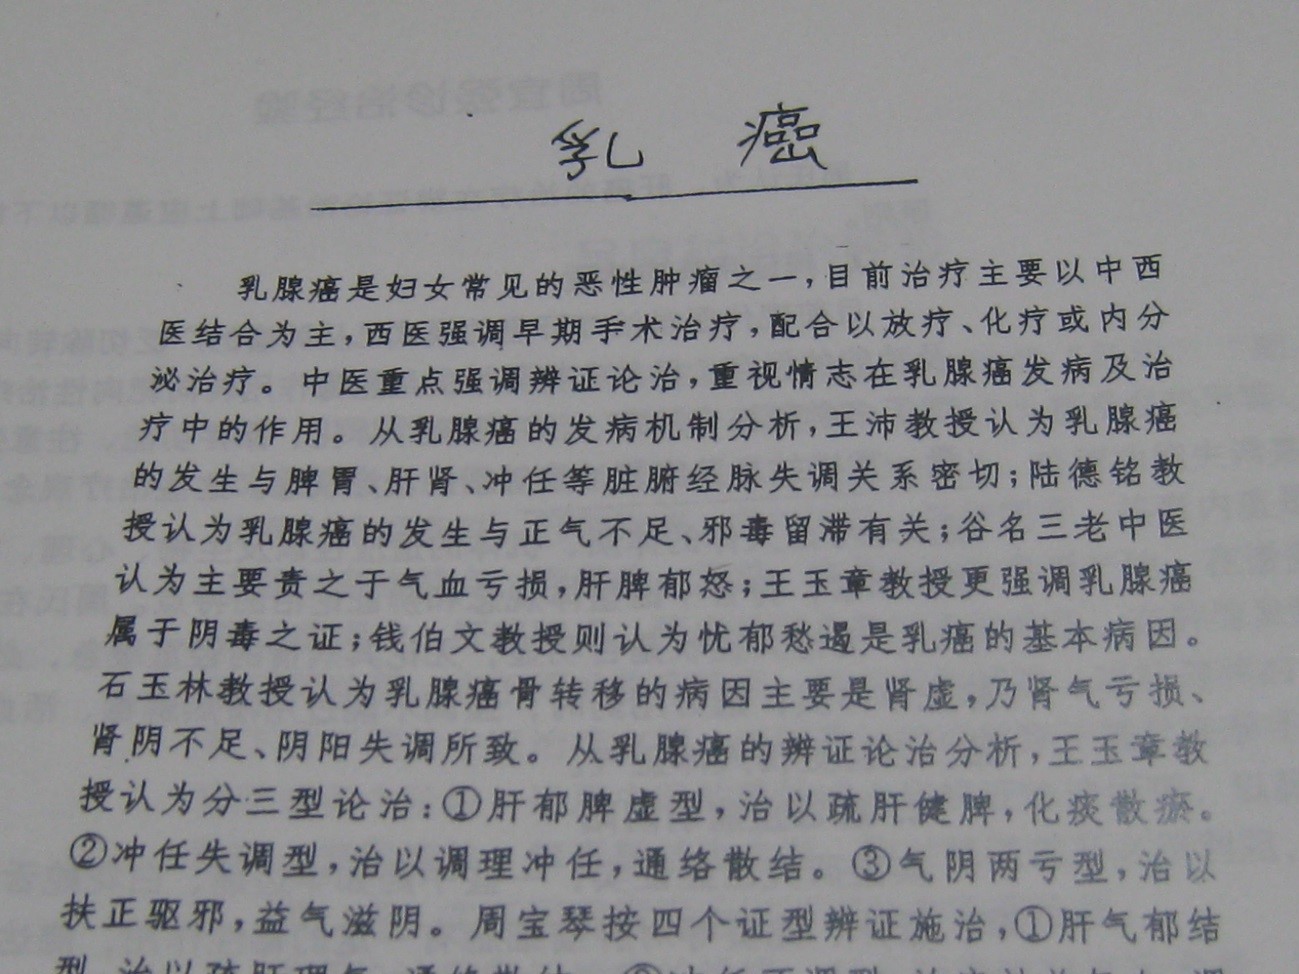 乳 癌
乳腺癌是妇女常见的恶性肿瘤之一,目前治疗主要以中西
医结合为主,西医强调早期手术治疗,配合以放疗、化疗或内分
泌治疗。中医重点强调辨证论治,重视情志在乳腺癌发病及治
疗中的作用。从乳腺癌的发病机制分析,王沛教授认为乳腺癌
的发生与脾胃、肝肾、冲任等脏腑经脉失调关系密切;陆德铭教
授认为乳腺癌的发生与正气不足、邪毒留滞有关;谷名三老中医
认为主要责之于气血亏损,肝脾郁怒;王玉章教授更强调乳腺癌
属于阴毒之证;钱伯文教授则认为忧郁愁遏是乳癌的基本病因。
石玉林教授认为乳腺癌骨转移的病因主要是肾虚,乃肾气亏损、
肾阴不足、阴阳失调所致。从乳腺癌的辨证论治分析,王玉章教
授认为分三型论治:①肝郁脾虚型,治以疏肝健脾,化痰散瘀。
②冲任失调型,治以调理冲任,通络散结。③气阴两亏型,治以
扶正驱邪,益气滋阴。周宝琴按四个证型辨证施治,①肝气郁结
型,治以疏肝理气,通络散结。②冲任